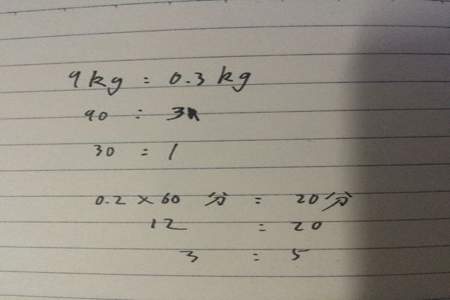 9kg : 0.3kg
90 : 3
30 : 1
0.2×60分 : 20分
12 : 20
3 : 5